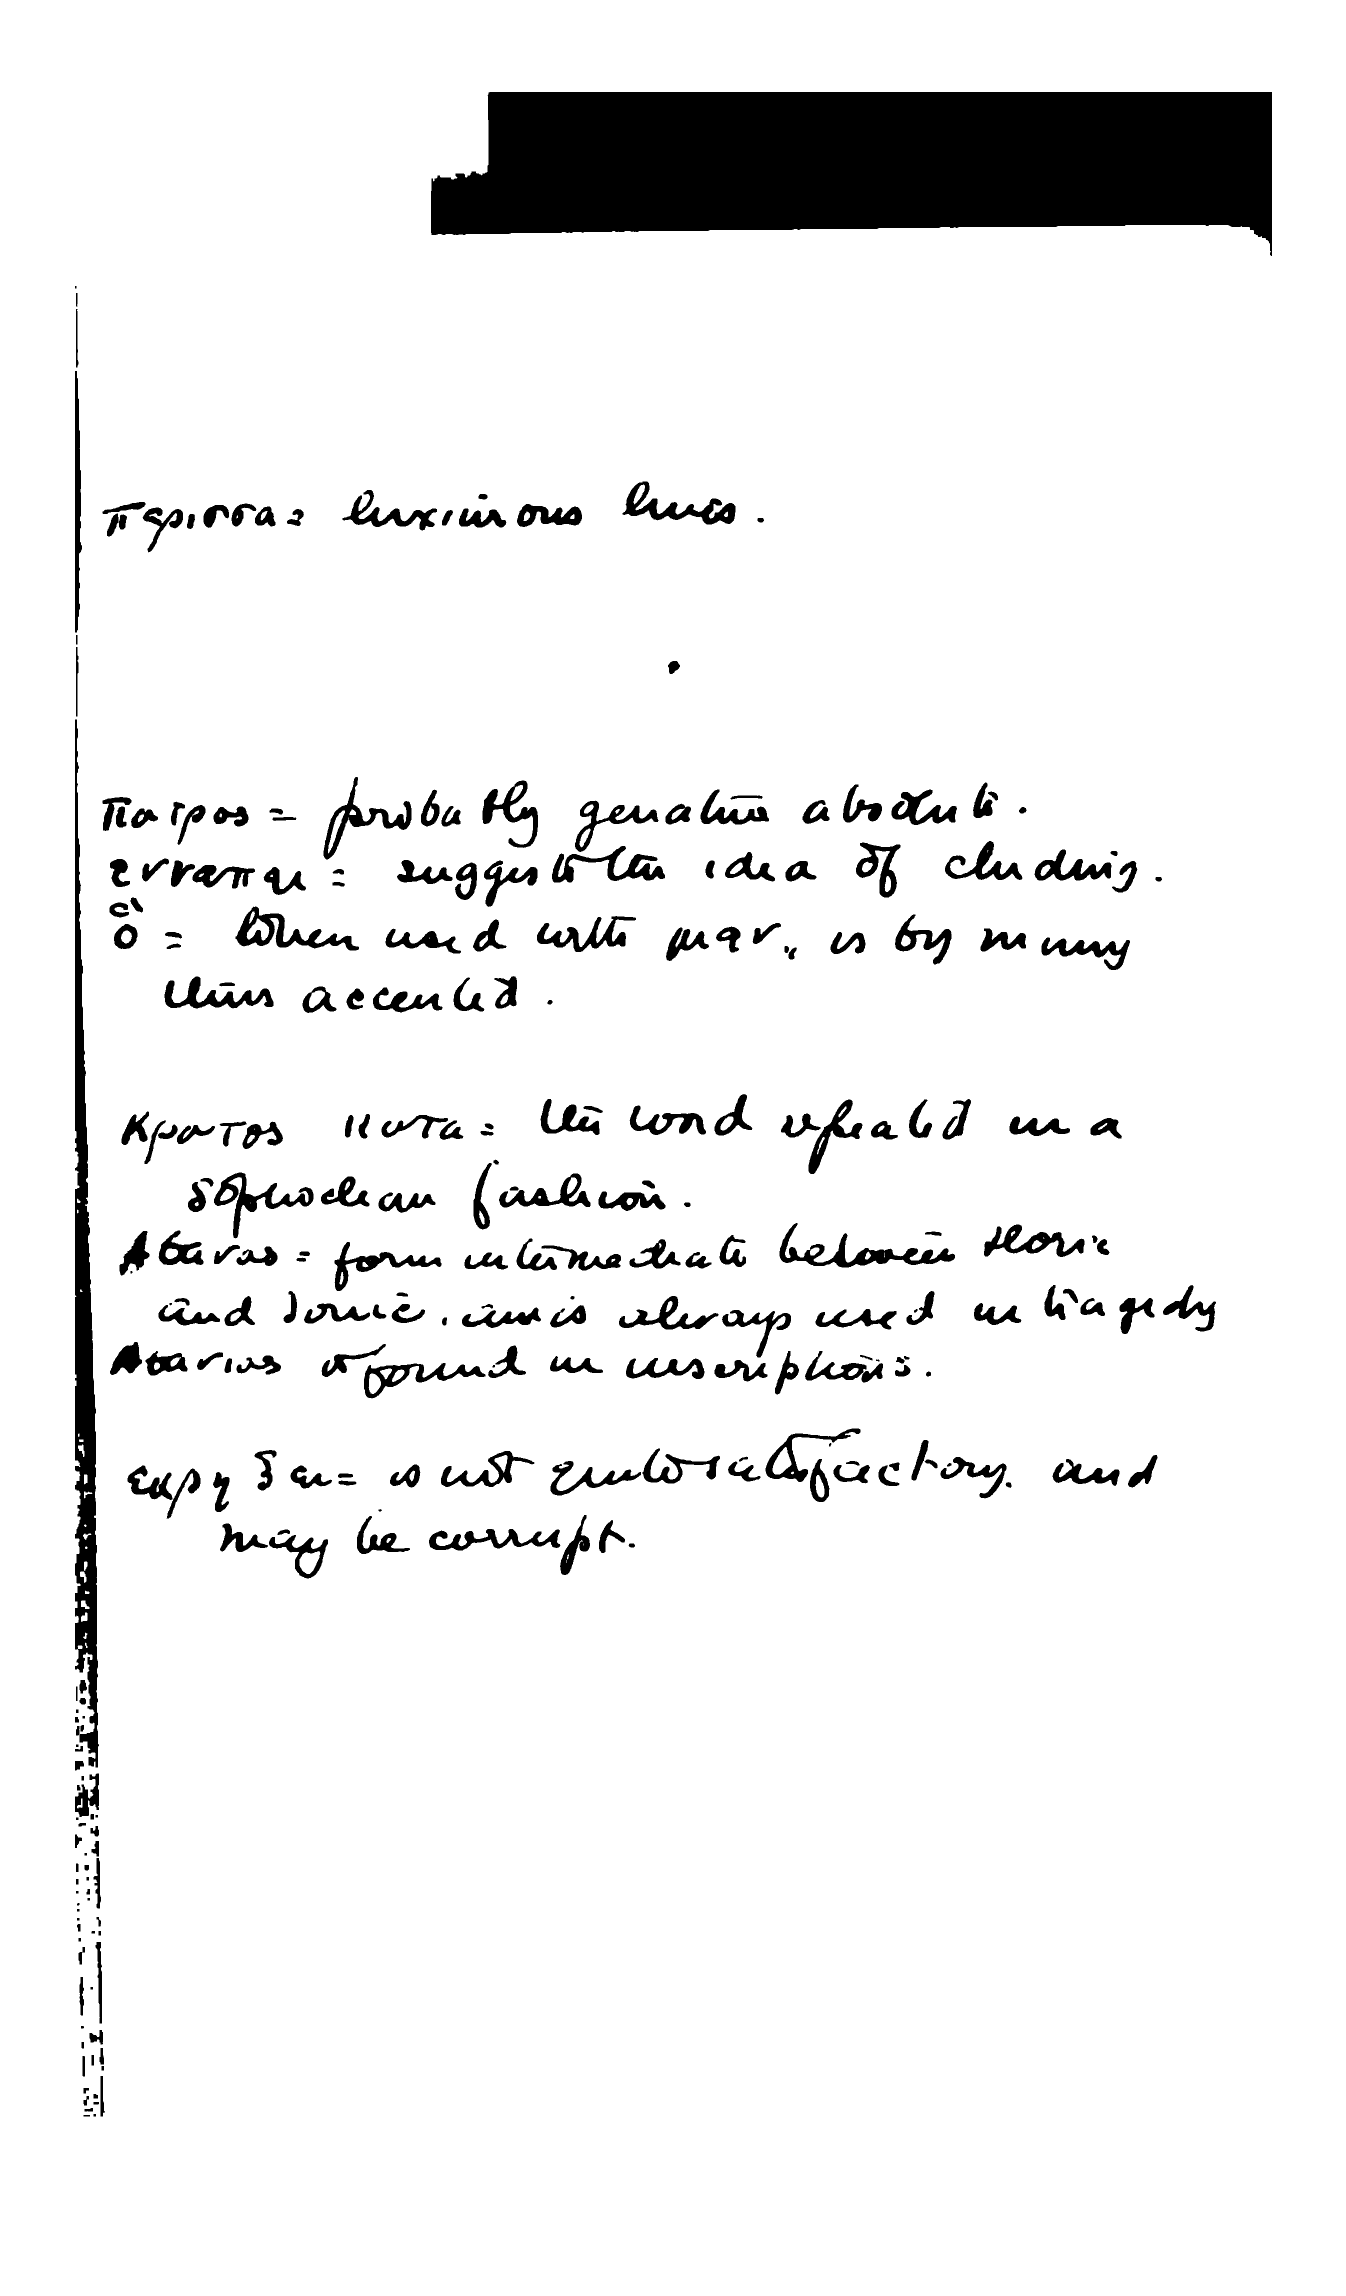 περισσα = luxurious lines.
πατρος = probably genative absolute.
= suggests the idea of eluding.
ὃ = When used with μεν, is by many
thus accented.
κρατος κατα = the word repeated in a
Sophoclean fashion.
Αθανας = form intermediate between Doric
and Ionic, always used in tragedy
Αθαναας is found in inscriptions.
= is not quite satisfactory. and
may be corrupt.